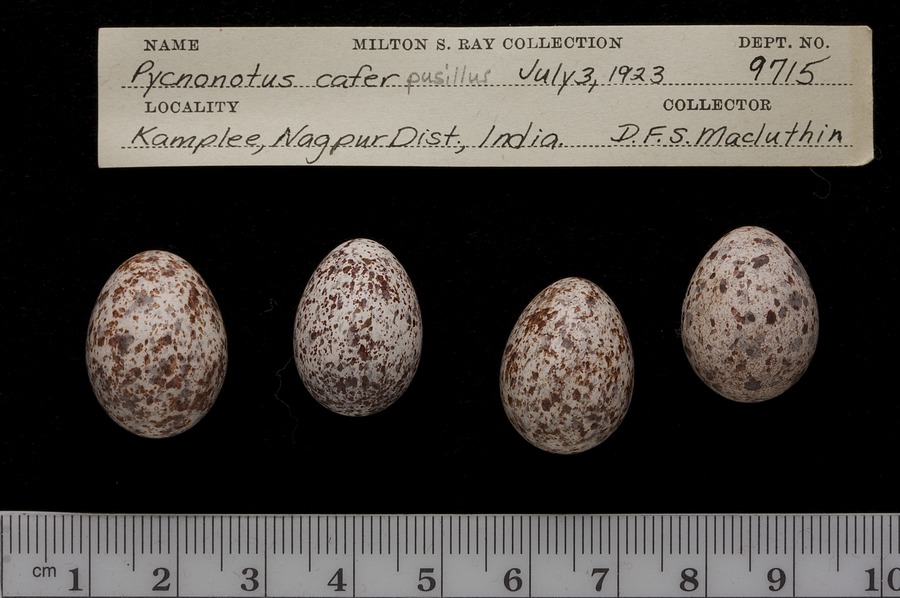 NAME MILTON S. RAY COLLECTION DEPT. NO.
Pycnonotus cafer pusillus July 3, 1923 9715
LOCALITY COLLECTOR
Kamplee, Nagpur Dist., India. D.F.S. Macluthin
cm 1 2 3 4 5 6 7 8 9 10